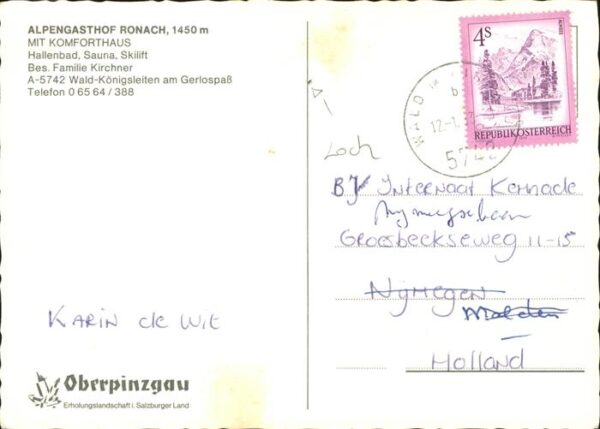 ALPENGASTHOF RONACH, 1450 m
MIT KOMFORTHAUS
Hallenbad, Sauna, Skilift
Bes. Familie Kirchner
A-5742 Wald-Königsleiten am Gerlospaß
Telefon 0 65 64 / 388
4S
REPUBLIK ÖSTERREICH
WALD
12-1
5742
Loch
Internaat Kennade
Groesbeekseweg 11-15
Nijmegen
Malden
Holland
KARIN de Wit
Oberpinzgau
Erholungslandschaft i. Salzburger Land